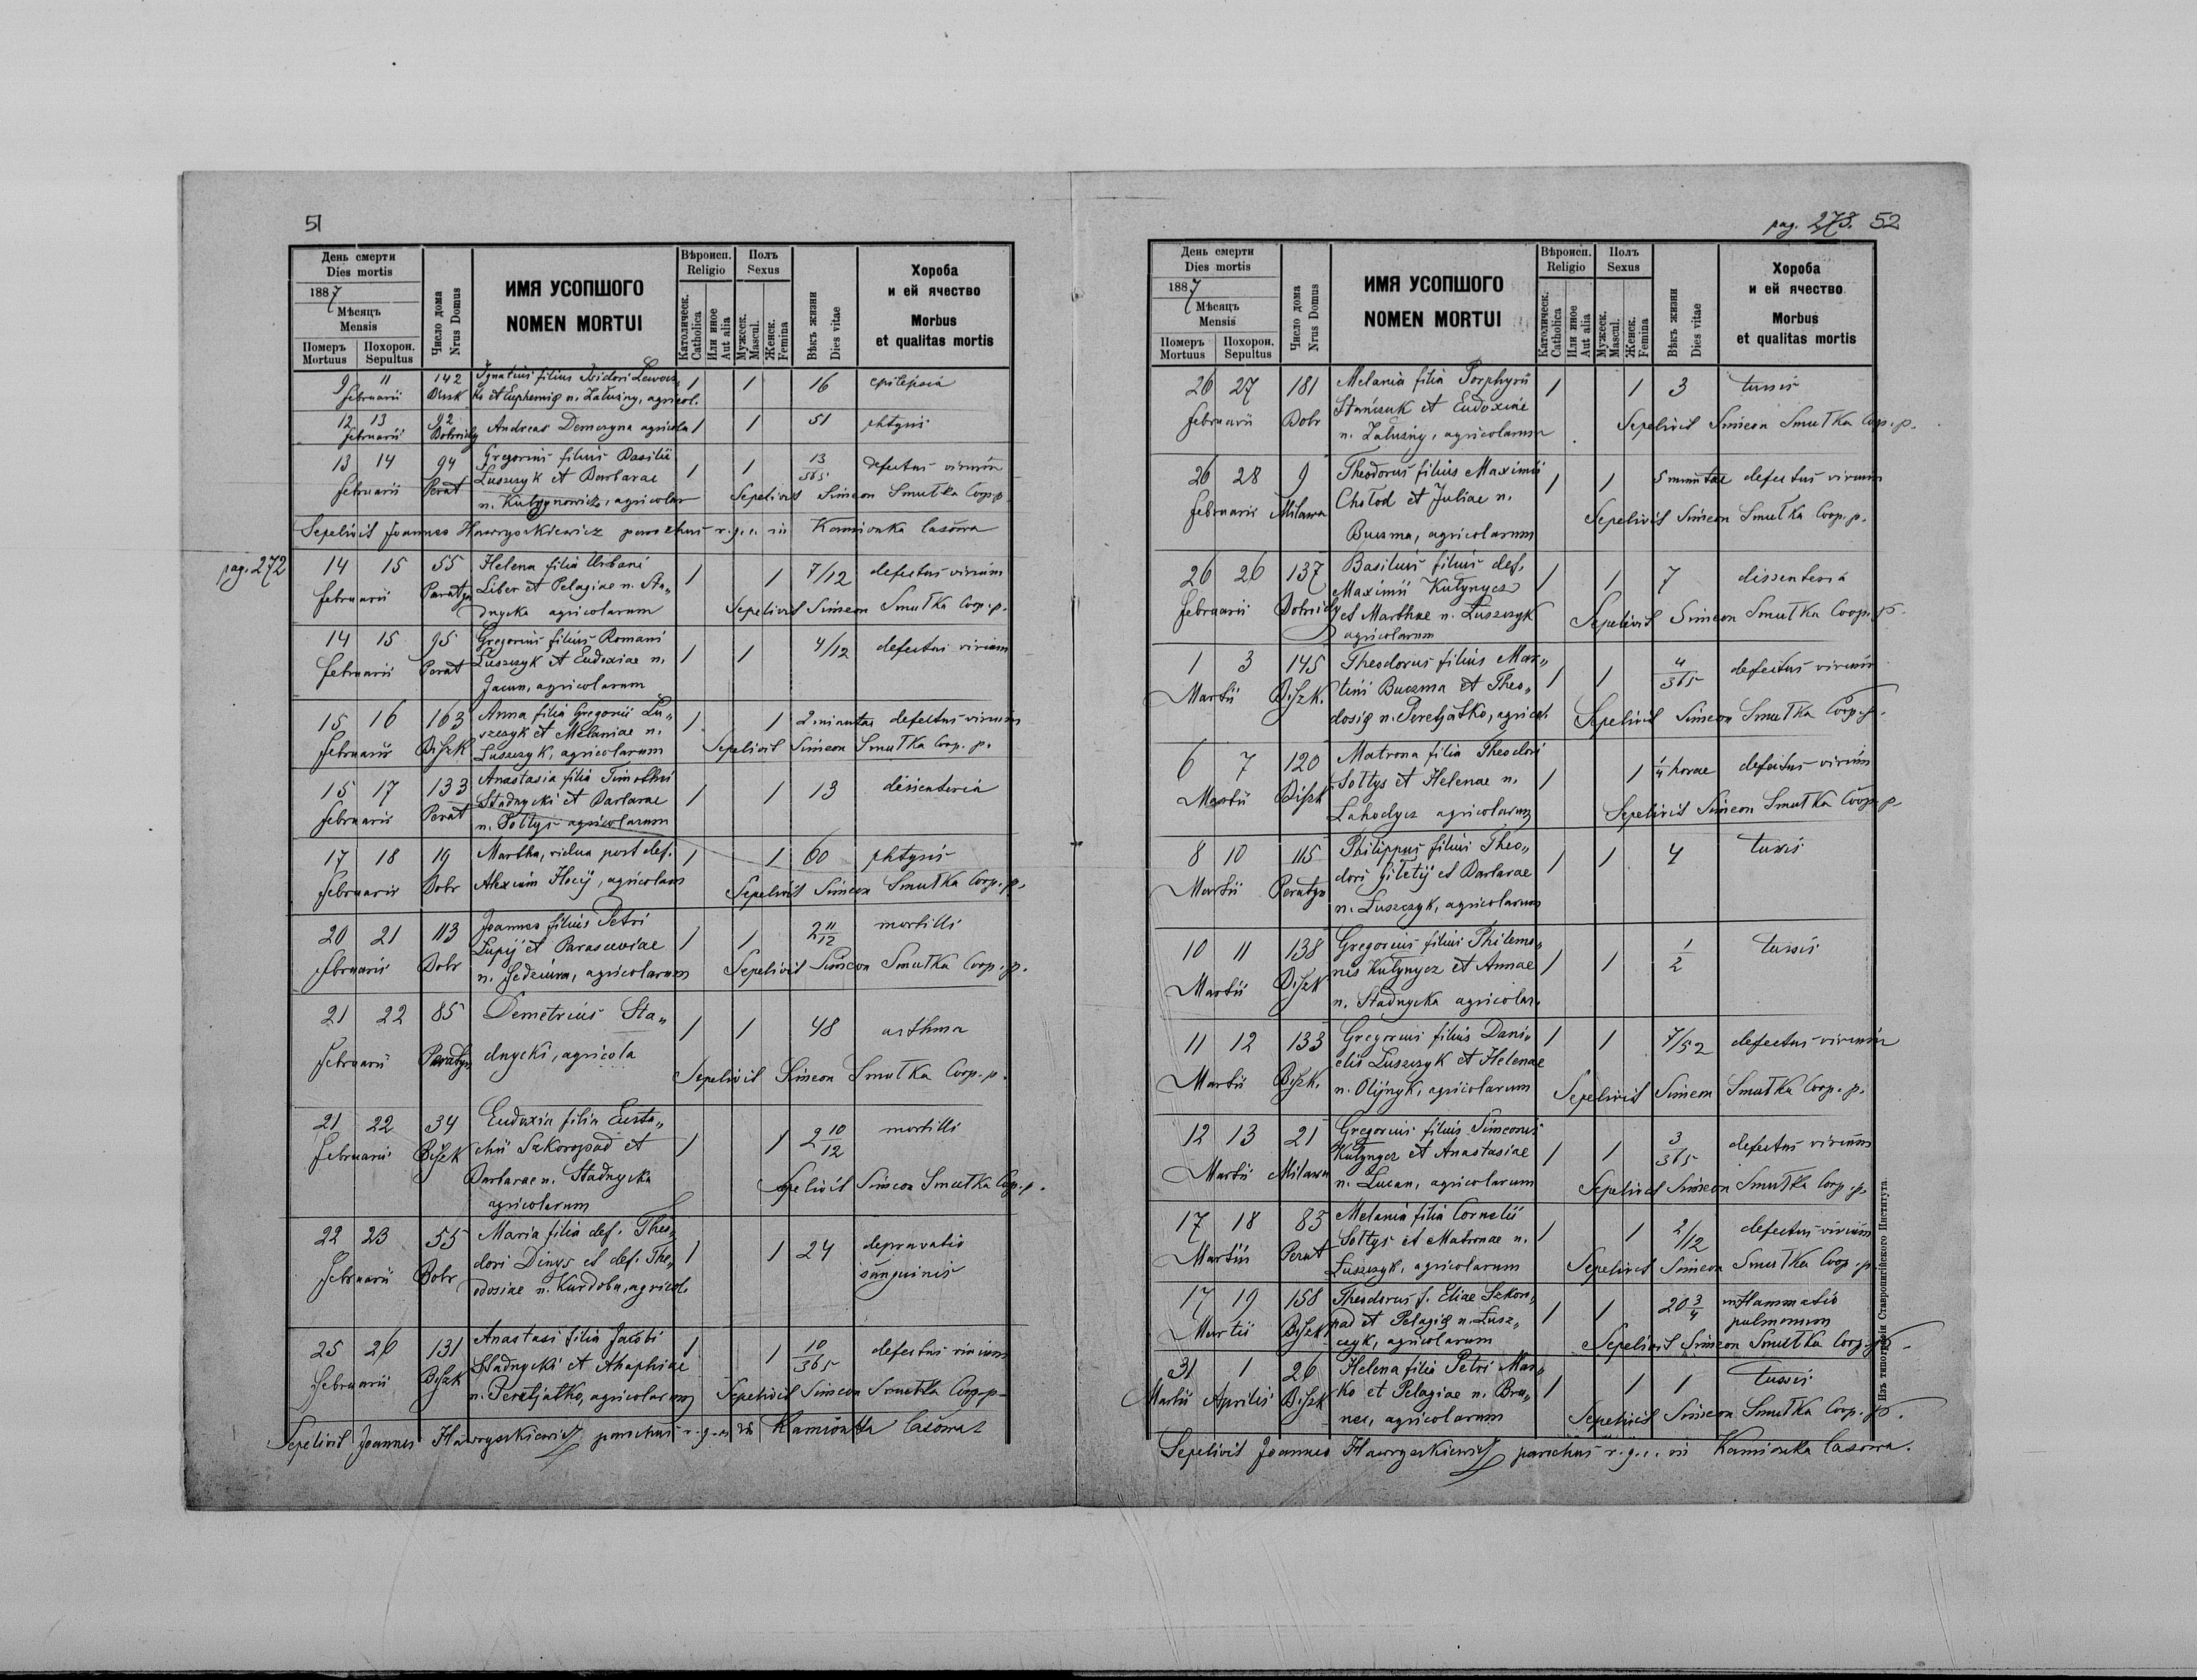 51
День смерти
Dies mortis
1887
Мѣсяцъ
Mensis
Померъ
Mortuus
Похорон.
Sepultus
Число дома
Nrus Domus
ИМЯ УСОПШОГО
NOMEN MORTUI
Вѣроисп.
Religio
Католическ.
Catholica
Или иное
Aut alia
Полъ
Sexus
Мужеск.
Mascul.
Женск.
Femina
Вѣкъ жизни
Dies vitae
Хороба
и ей ячество
Morbus
et qualitas mortis
9 11 142 Ignatius filius Isidori 1 1 16 epilepsia
februarii Bisk ko et Euphemię n. Załużny, agricol.
12 13 92 Andreas Demczyna agricola 1 1 51 phtysis
februarii
13 14 94 Gregorius filius Basilii 1 1 13/365 defectus virium
februarii Perat Łuszczyk et Barbarae
n. agricolar Sepelivit Simeon Smutka Coop. p.
Sepelivit Joannes Hawryszkiewicz parochus r. g. c. in Kamionka lasowa
pag. 272
14 15 55 Helena filia Urbani 1 1 7/12 defectus virium
februarii Paratyn Liber et Pelagiae n. Sta„
dnycka agricolarum Sepelivit Simeon Smutka Coop. p.
14 15 95 Gregorius filius Romani 1 1 4/12 defectus virium
februarii Perat Łuszczyk et Eudoxiae n.
Jacun, agricolarum
15 16 163 Anna filia Gregorii Łu„ 1 1 2 minutae defectus virium
februarii Biszk szczyk et Melaniae n.
Łuszczyk, agricolarum Sepelivit Simeon Smutka Coop. p.
15 17 133 Anastasia filia Timothei 1 1 13 dissenteria
februarii Perat Stadnycki et Barbarae
n. Sołtys agricolarum
17 18 19 Martha, vidua post def. 1 1 60 phtysis
februarii Dobr Alexium agricolam Sepelivit Simeon Smutka Coop. p.
20 21 113 Joannes filius Petri 1 1 2 11/12 morbilli
februarii Dobr Łupij et Parasceviae
n. agricolarum Sepelivit Simeon Smutka Coop. p.
21 22 85 Demetrius Sta„ 1 1 48 asthma
februarii Peratyn dnycki, agricola
Sepelivit Simeon Smutka Coop. p.
21 22 34 Eudoxia filia Eusta„ 1 1 2 10/12 morbilli
februarii Biszk chii Szkoropad et
Barbarae n. Stadnycka Sepelivit Simeon Smutka Coop. p.
agricolarum
22 23 55 Maria filia def. Theo„ 1 1 24 depravatio
februarii Dobr dori Dinys et def. The„ sanguinis
odosiae n. Kurdoba, agricol.
25 26 131 Anastasi filia Jacobi 1 1 10/365 defectus virium
februarii Biszk Stadnycki et Ahaphiae
n. Peretjatko, agricolarum Sepelivit Simeon Smutka Coop. p.
Sepelivit Joannes Hawryszkiewicz parochus r. g. c. in Kamionka lasowa
pag. 273. 52
День смерти
Dies mortis
1887
Мѣсяцъ
Mensis
Померъ
Mortuus
Похорон.
Sepultus
Число дома
Nrus Domus
ИМЯ УСОПШОГО
NOMEN MORTUI
Вѣроисп.
Religio
Католическ.
Catholica
Или иное
Aut alia
Полъ
Sexus
Мужеск.
Mascul.
Женск.
Femina
Вѣкъ жизни
Dies vitae
Хороба
и ей ячество
Morbus
et qualitas mortis
26 27 181 Melania filia Porphyrii 1 1 3 tussis
februarii Dobr Stańczuk et Eudoxiae
n. Załużny, agricolarum Sepelivit Simeon Smutka Coop. p.
26 28 9 Theodorus filius Maximii 1 1 5 minutae defectus virium
februarii Milawa Chołod et Juliae n.
Buczma, agricolarum Sepelivit Simeon Smutka Coop. p.
26 26 137 Basilius filius def. 1 1 7 dissenteria
februarii Maximii Kułynycz
et Marthae n. Łuszczyk Sepelivit Simeon Smutka Coop. p.
agricolarum
1 3 145 Theodorus filius Mar„ 1 1 4/365 defectus virium
Martii Biszk. tini Buczma et Theo„
dosię n. Peretjatko, agricol. Sepelivit Simeon Smutka Coop. p.
6 7 120 Matrona filia Theodori 1 1 1/4 horae defectus virium
Martii Biszk Sołtys et Helenae n.
Lahodycz agricolarum Sepelivit Simeon Smutka Coop. p.
8 10 115 Philippus filius Theo„ 1 1 4 tussis
Martii Peratyn dori Giletij et Barbarae
n. Łuszczyk, agricolarum
10 11 138 Gregorius filius Philemo„ 1 1 1/2 tussis
Martii Biszk nis Kułynycz et Annae
n. Stadnycka agricolar.
11 12 133 Gregorius filius Dani„ 1 1 7/52 defectus virium
Martii Biszk. elis Łuszczyk et Helenae
n. Olijnyk, agricolarum Sepelivit Simeon Smutka Coop. p.
12 13 21 Gregorius filius Simeonis 1 1 3/365 defectus virium
Martii Milawa Kułynycz et Anastasiae
n. Lucan, agricolarum Sepelivit Simeon Smutka Coop. p.
17 18 83 Melania filia Cornelii 1 1 2/12 defectus virium
Martii Perat Sołtys et Matronae n.
Łuszczyk, agricolarum Sepelivit Simeon Smutka Coop. p.
17 19 158 Theodorus f. Eliae Szkoro„ 1 1 20 3/4 inflammatio
Martii Biszk pad et Pelagię n. Łusz„ pulmonum
czyk, agricolarum Sepelivit Simeon Smutka Coop. p.
31 1 26 Helena filia Petri Mar„ 1 1 1 tussis
Martii Aprilis Biszk ko et Pelagiae n. Bru„
nec, agricolarum Sepelivit Simeon Smutka Coop. p.
Sepelivit Joannes Hawryszkiewicz parochus r. g. c. in Kamionka lasowa.
Изъ типографіи Ставропигійского Института.